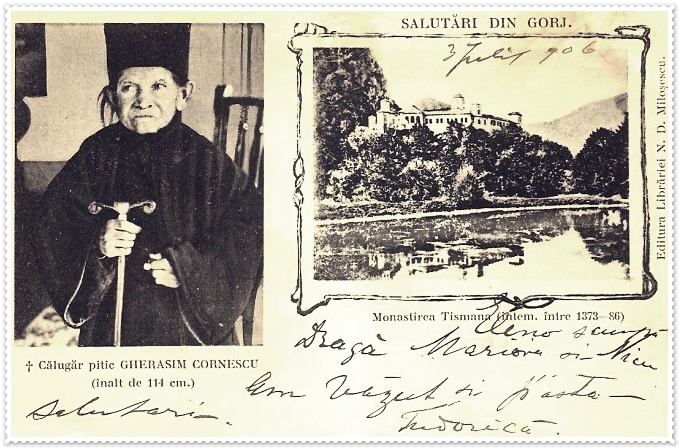 SALUTĂRI DIN GORJ.
906
Editura Librăriei N. D. Miloșescu.
Monastirea Tismana (întem. între 1373—86)
† Călugăr pitic GHERASIM CORNESCU
(înalt de 114 cm.)
Dragă Marioră si Nicu
Am văzut si p'asta —
Tudorică.
Salutari —